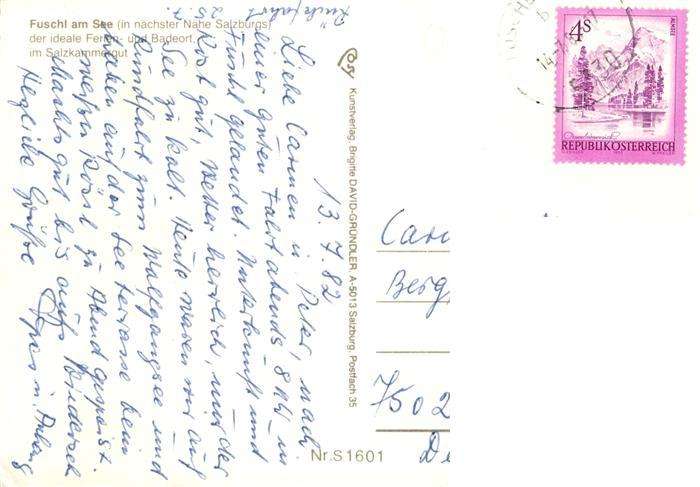 Fuschl am See (in nächster Nähe Salzburgs)
der ideale Ferien- und Badeort,
im Salzkammergut
13.7.82
Liebe Carmen u. Peter, nach
einer guten Fahrt abends 8 Uhr in
Fuschl gelandet. Unterkunft und
Kost gut, Wetter herrlich, nur der
See zu kalt. Heute waren wir auf
Rundfahrt zum Wolfgangsee und
haben auf der Seeterrasse beim
weißen Rössl zu Abend gespeist.
Machts gut bis aufs Wiedersehn
Herzliche Grüße Opa u.
Kunstverlag Brigitte DAVID-GRÜNDLER, A-5013 Salzburg, Postfach 35
Nr. S 1601
4S
ALMSEE
REPUBLIK ÖSTERREICH
Berg
7502